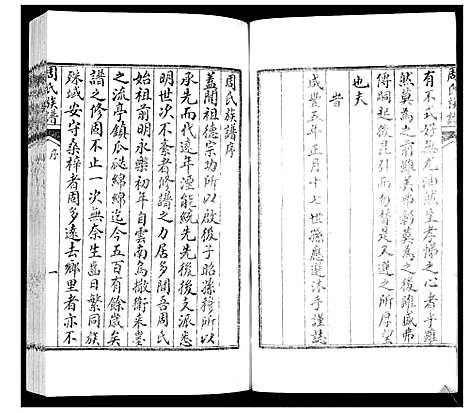 有不式好無尤油然生孝悌之心者乎雖
然莫為之前雖美弗彰莫為之後雖盛弗
傳嗣起後昆引而勿替是又予之所厚望
也夫
旹
咸豐五年正月十七世孫應選沐手謹誌
周氏族譜
周氏族譜
序
一
周氏族譜序
蓋聞祖德宗功所以啟後子昭孫穆所以
承先而代遠年湮能統先先後後支派悉
明世次不紊者修譜之力居多聞吾周氏
始祖前明永樂初年自雲南烏撒衛來墨
之流亭鎮瓜瓞綿綿迄今五百有餘歲矣
譜之修固不止一次無奈生齒日繁同族
殊域安守桑梓者固多遠去鄉里者亦不